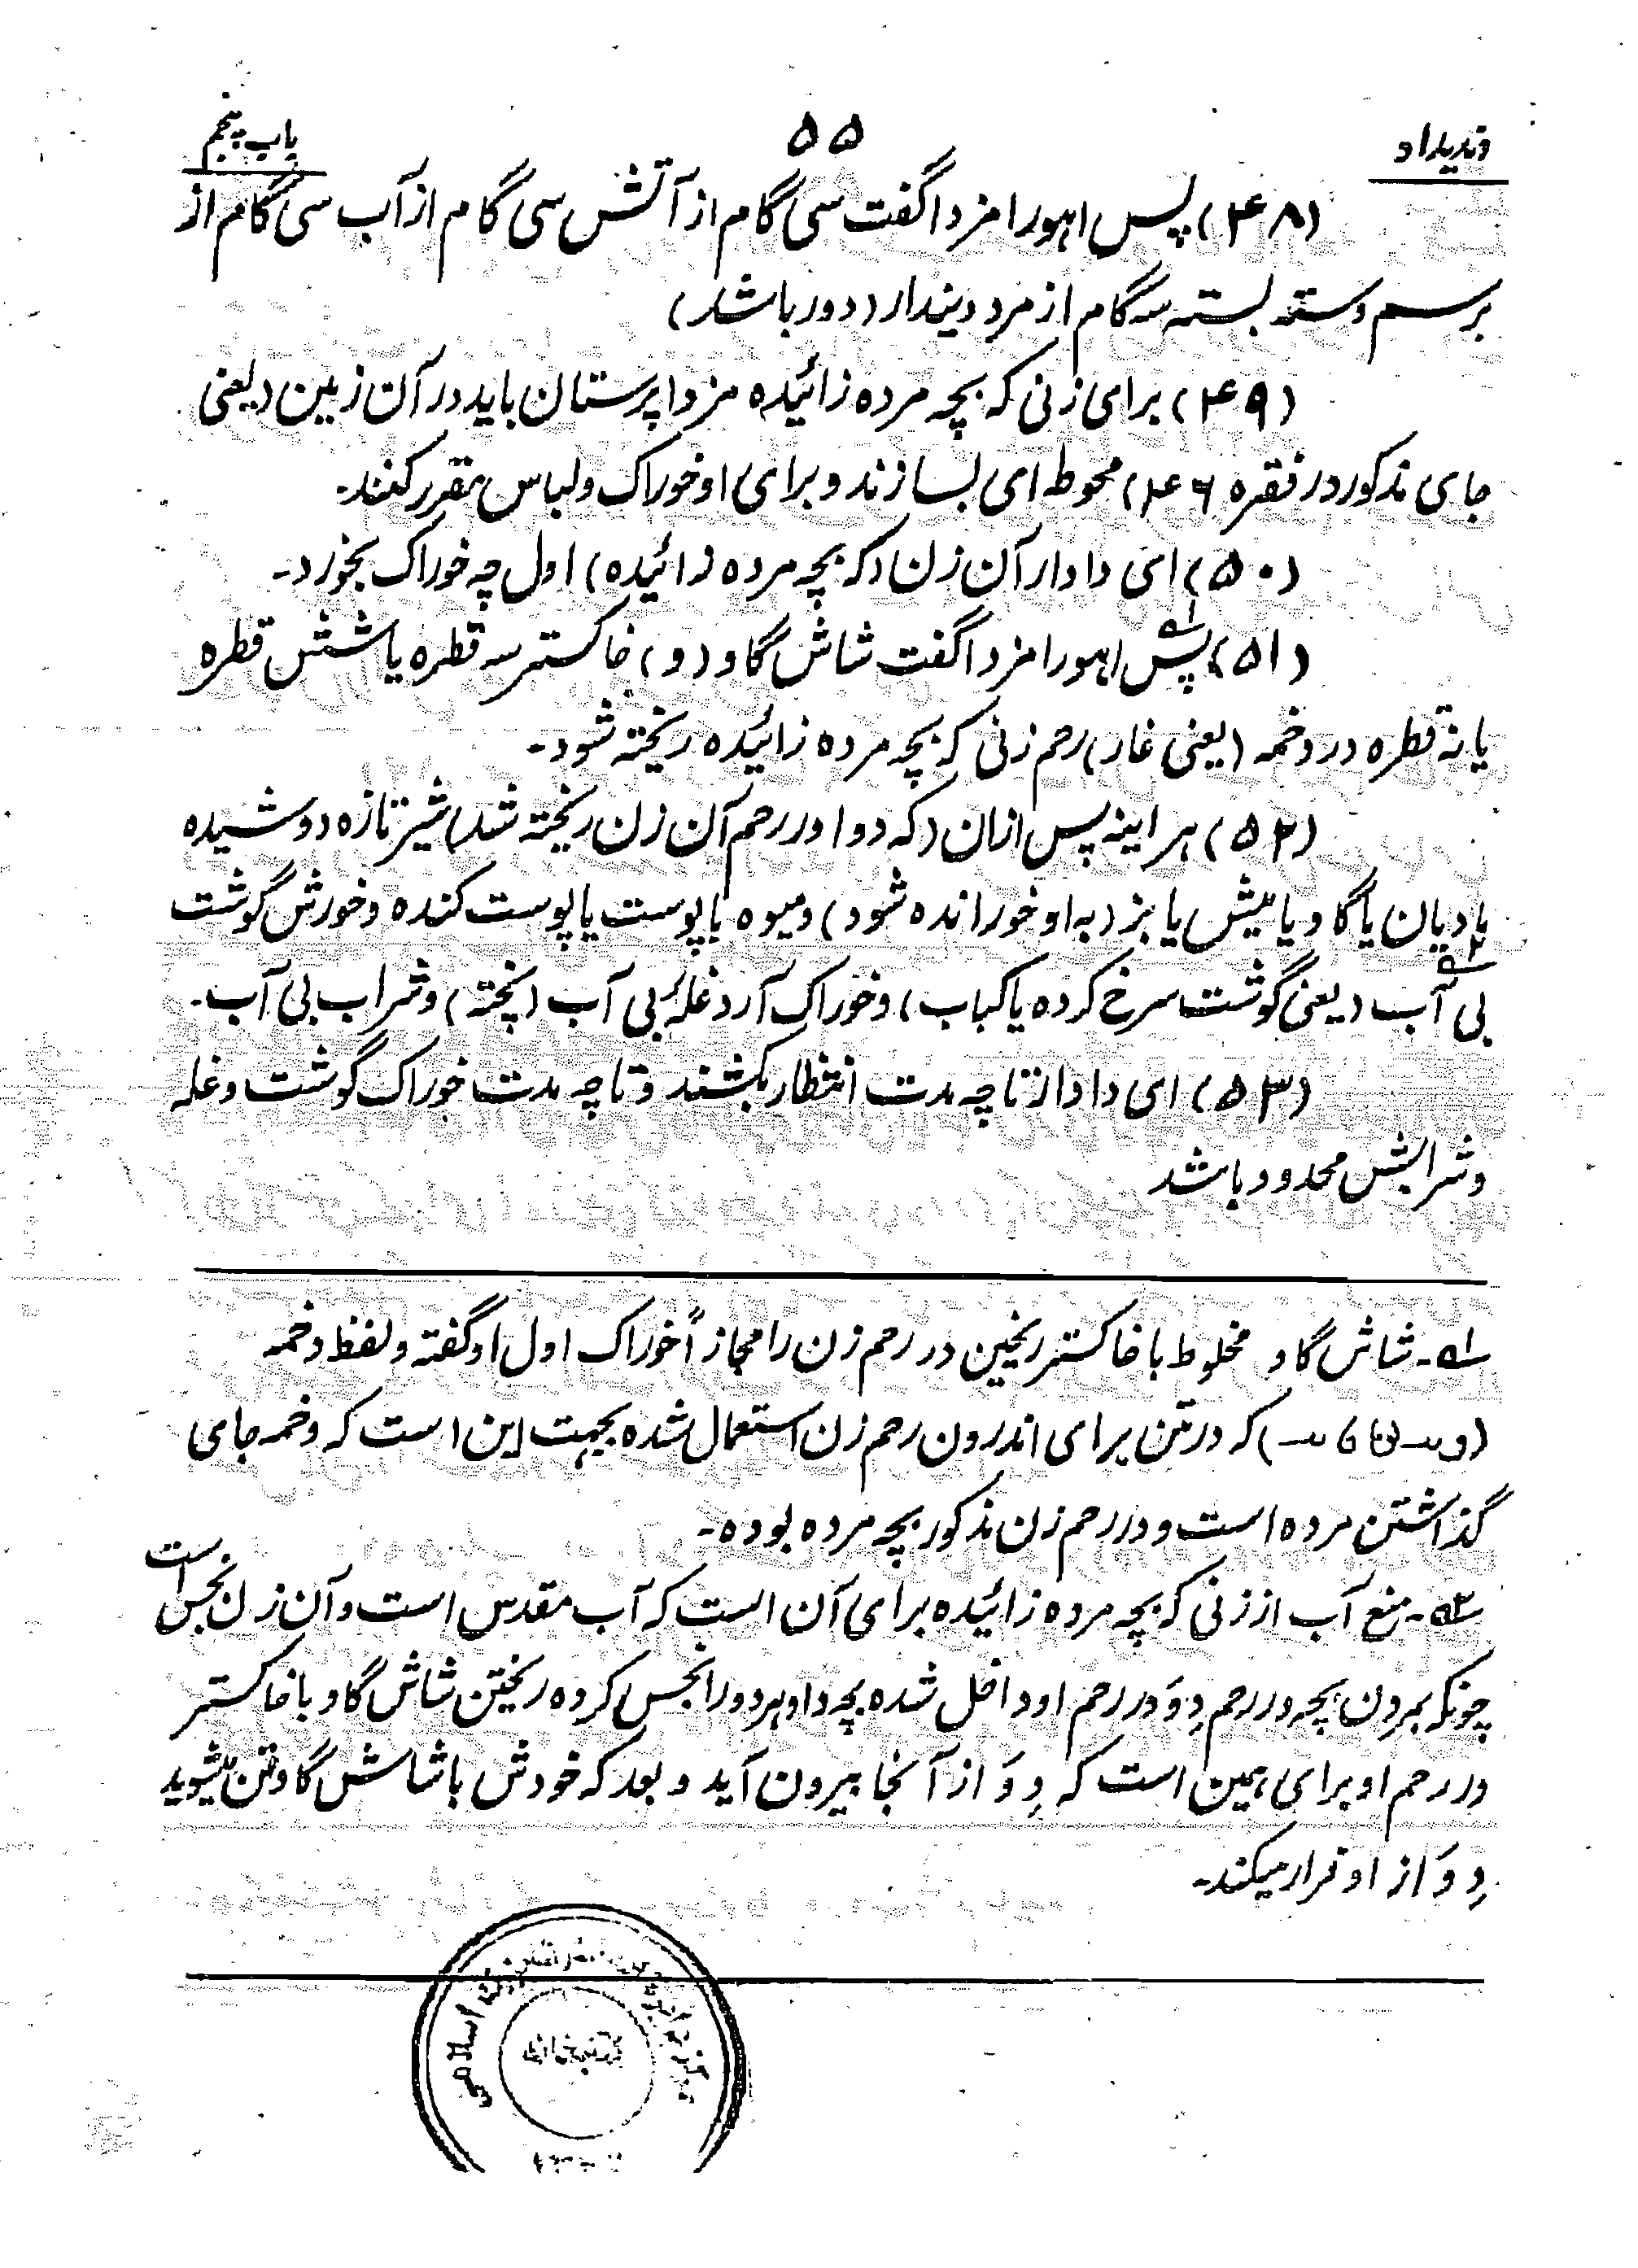 وندیداد
۵۵
باب پنجم
(۴۸) پس اهورامزدا گفت سی گام از آتش سی گام از آب سی گام از
برسم دسته بسته سه گام از مرد دیندار (دور باشد)
(۴۹) برای زنی که بچه مرده زائیده مزدا پرستان باید در آن زمین (یعنی
جای مذکور در فقره ۴۶) محوطه ای بسازند و برای او خوراک و لباس مقرر کنند-
(۵۰) ای دادار آن زن (که بچه مرده زائیده) اول چه خوراک بخورد-
(۵۱) پس۱ اهورامزدا گفت شاش گاو (و) خاکستر سه قطره یا شش قطره
یا نه قطره در دخمه (یعنی غار) رحم زنی که بچه مرده زائیده ریخته شود-
(۵۲) هر اینه پس ازان (که دوا در رحم آن زن ریخته شد) شیر تازه دوشیده
مادیان یا گاو یا میش یا بز (به او خورانده شود) و میوه با پوست یا پوست کنده و خورش گوشت
بی آب۲ (یعنی گوشت سرخ کرده یا کباب) و خوراک آرد غلهٔ بی آب (پخته) و شراب بی آب-
(۵۳) ای دادار تا چه مدت انتظار بکشند و تا چه مدت خوراک گوشت و غله
و شرابش محدود باشد
۱ه- شاش گاو مخلوط با خاکستر ریختن در رحم زن را مجازاً خوراک اول او گفته و لفظ دخمه
که در متن برای اندرون رحم زن استعمال شده بجهت این است که دخمه جای
گذاشتن مرده است و در رحم زن مذکور بچه مرده بوده-
۲ه- منع آب از زنی که بچه مرده زائیده برای آن است که آب مقدس است و آن زن نجس است
چونکه بمردن بچه در رحم دِوَ در رحم او داخل شده بچه و او هر دو را نجس کرده ریختن شاش گاو با خاکستر
در رحم او برای همین است که دِوَ از آنجا بیرون آید و بعد که خودش با شاش گاو تن میشوید
دِوَ از او فرار میکند-
اسلامی
کتابخانه